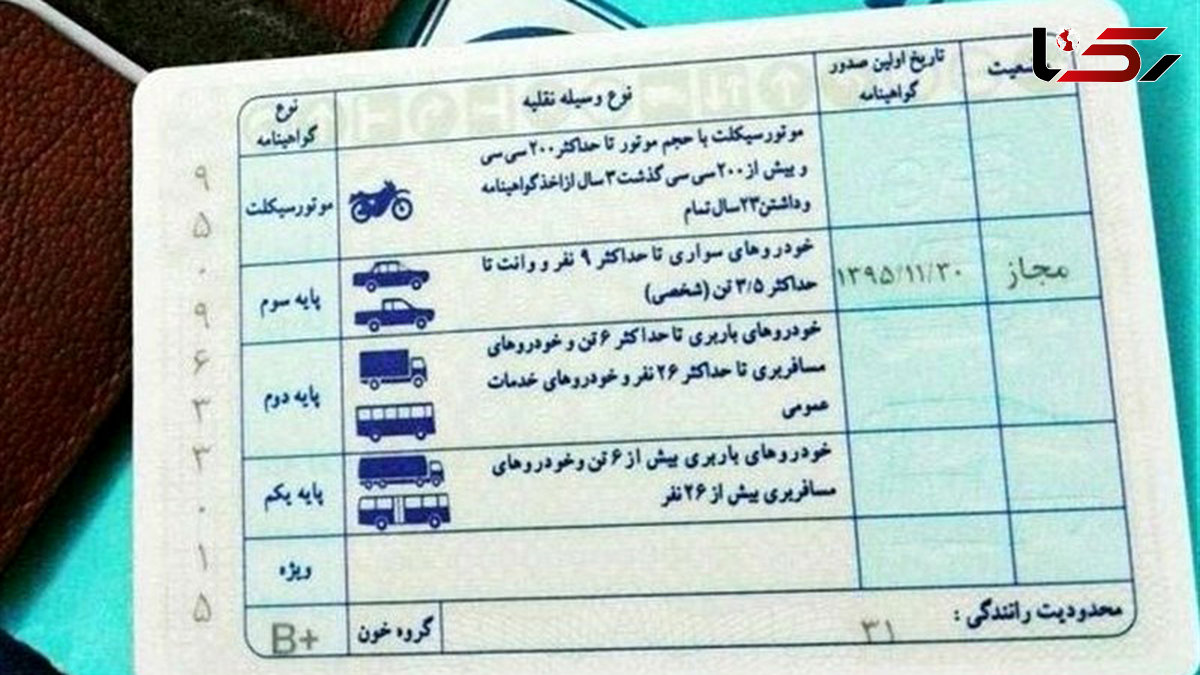 رکنا
وضعیت
تاریخ اولین صدور
گواهینامه
نوع وسیله نقلیه
نوع
گواهینامه
موتورسیکلت با حجم موتور تا حداکثر ۲۰۰ سی سی
و بیش از ۲۰۰ سی سی گذشت ۳ سال از اخذ گواهینامه
و داشتن ۲۳ سال تمام
موتورسیکلت
مجاز
۱۳۹۵/۱۱/۳۰
خودروهای سواری تا حداکثر ۹ نفر و وانت تا
حداکثر ۳/۵ تن (شخصی)
پایه سوم
خودروهای باربری تا حداکثر ۶ تن و خودروهای
مسافربری تا حداکثر ۲۶ نفر و خودروهای خدمات
عمومی
پایه دوم
خودروهای باربری بیش از ۶ تن و خودروهای
مسافربری بیش از ۲۶ نفر
پایه یکم
ویژه
محدودیت رانندگی :
۳۱
گروه خون
B+
۹
۵
۰
۹
۶
۳
۳
۰
۱
۵